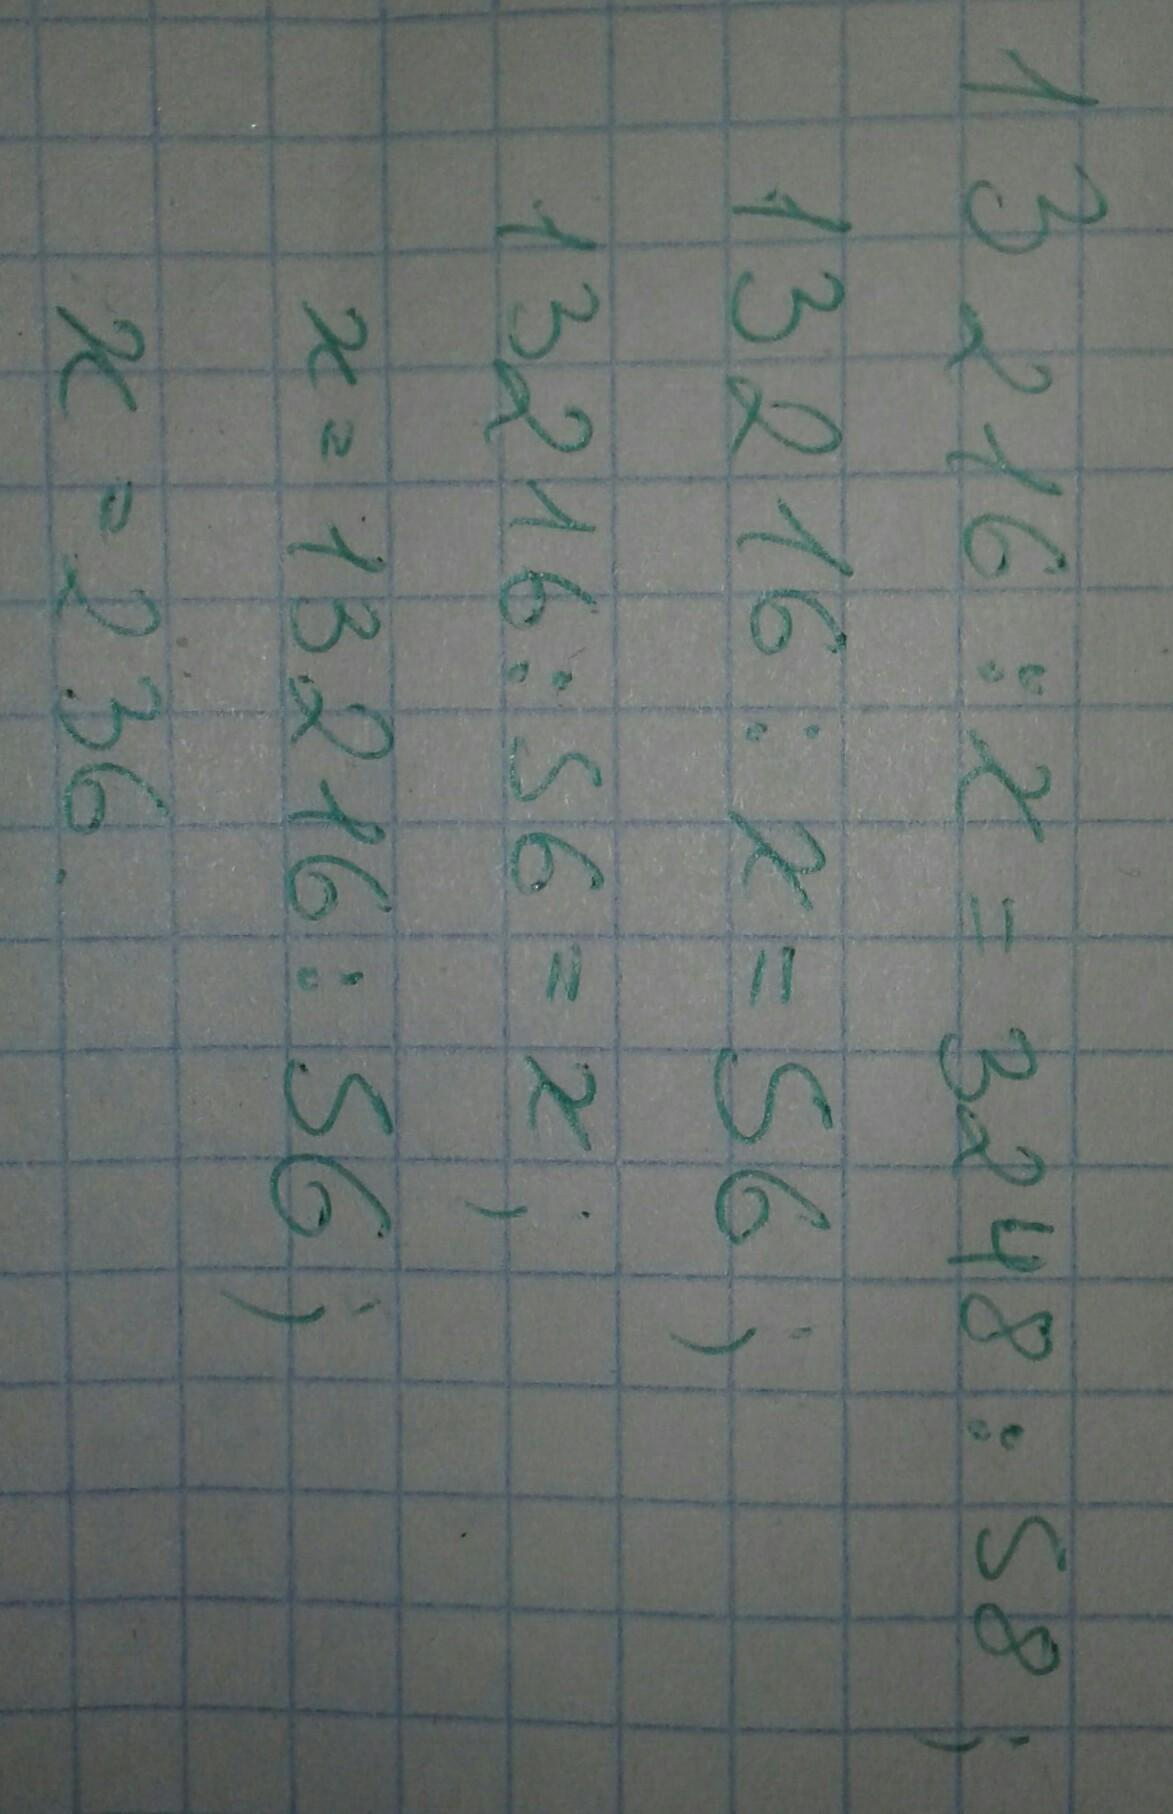 13216 : x = 3248 : 58;
13216 : x = 56;
13216 : 56 = x;
x = 13216 : 56;
x = 236.